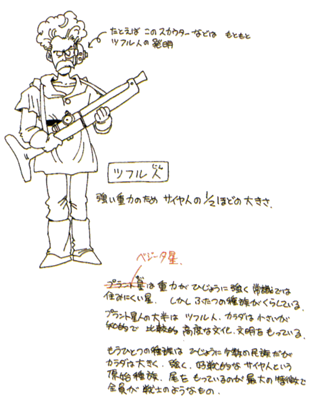 たとえば このスカウターなどは もともと
ツフル人の発明
ツフル人
じん
強い重力のため サイヤ人の1/2ほどの大きさ.
ベジータ星.
プラント星は重力がひじょうに強く 常識では
住みにくい星. しかし ふたつの種族がくらしている.
プラント星人の大半は ツフル人. カラダは小さいが
知的で 比較的 高度な文化、文明をもっている.
もうひとつの種族は ひじょうに少数の民族だが
カラダは大きく、強く、好戦的なサイヤ人という
原始種族. 尾をもっているのが最大の特徴で
全員が戦士のようなもの.